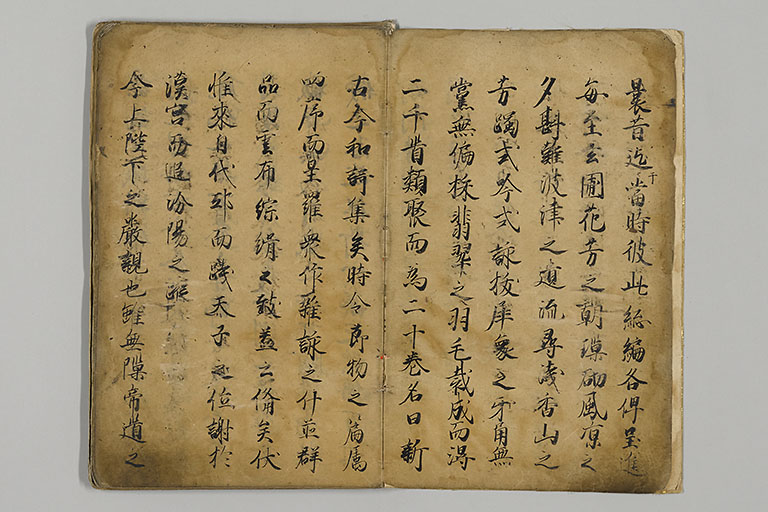 曩昔迄于當時彼此総編各俾呈進
毎至玄圃花芳之朝璅砌風凉之
夕斟難波津之遺流尋淺香山之
芳躅或吟或詠拔犀象之牙角無
黨無偏採翡翠之羽毛裁成而得
二千首類聚而為二十巻名曰新
古今和詩集矣時令節物之篇属
四序而星羅衆作雜詠之什並群
品而雲布綜緝之致蓋云備矣伏
惟來自代邸而踐天子之位謝於
漢宮而追汾陽之蹤
今上陛下之嚴親也雖無隙帝道之